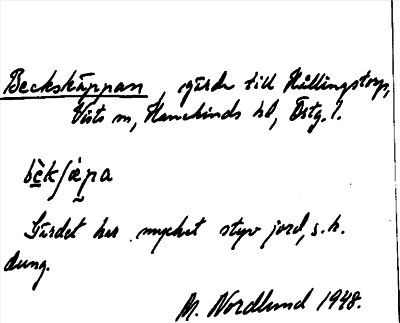 Beckskäppan, gärde till Hällingstorp,
Vists sn, Hanekinds hd, Östg. l.
bèkʃæ̀pa
Gärdet har mycket styv jord, s.k.
dung.
M. Nordlund 1948.